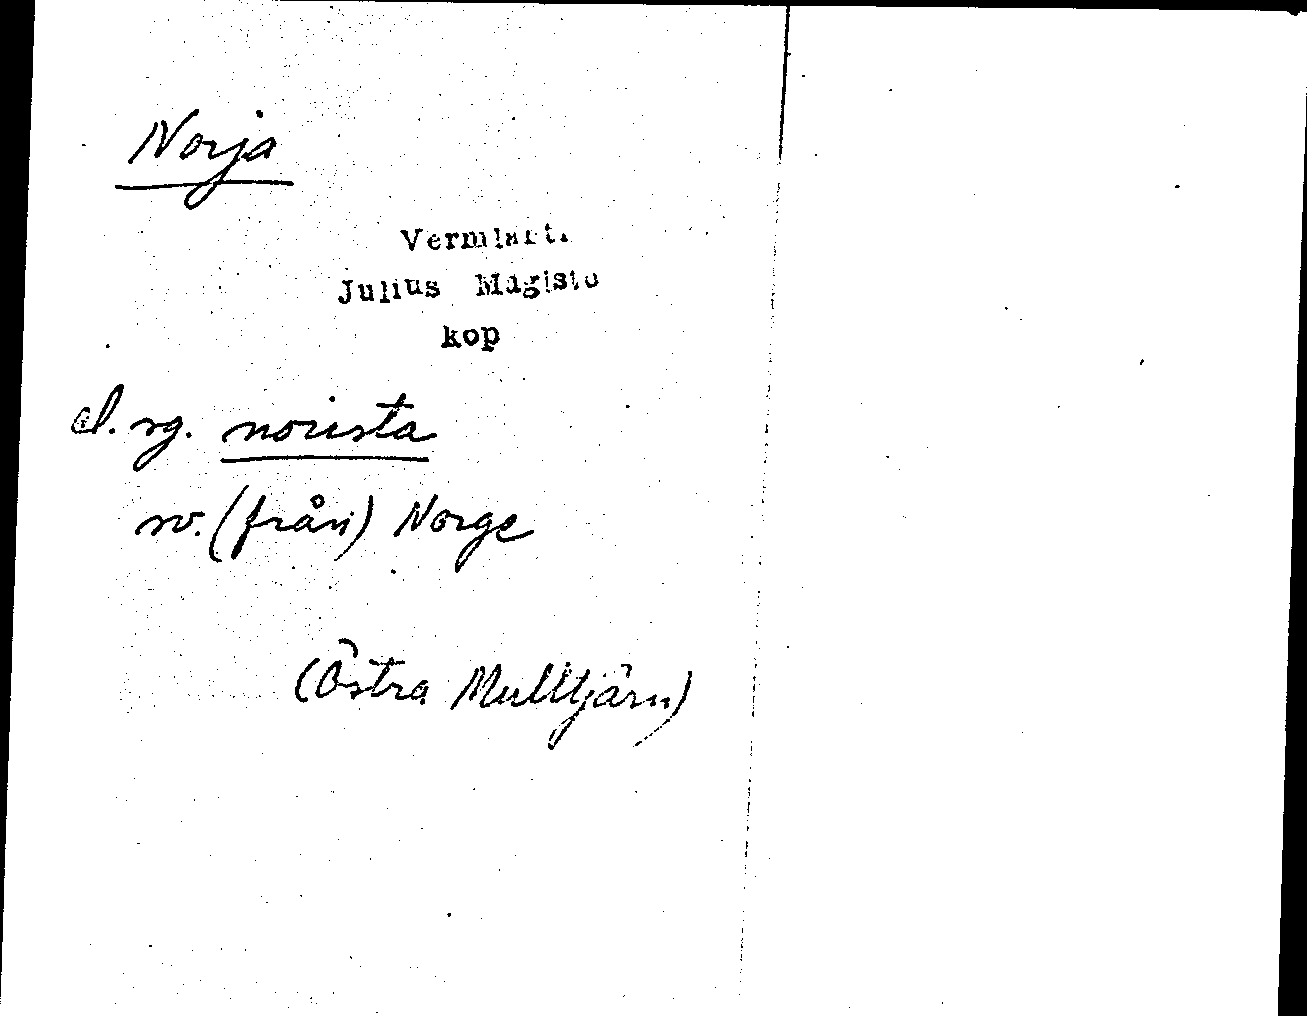 Norja
Vermlant.
Julius Mägiste
kop
el. sg. norista
sv. (från) Norge
(Östra Mulltjärn)